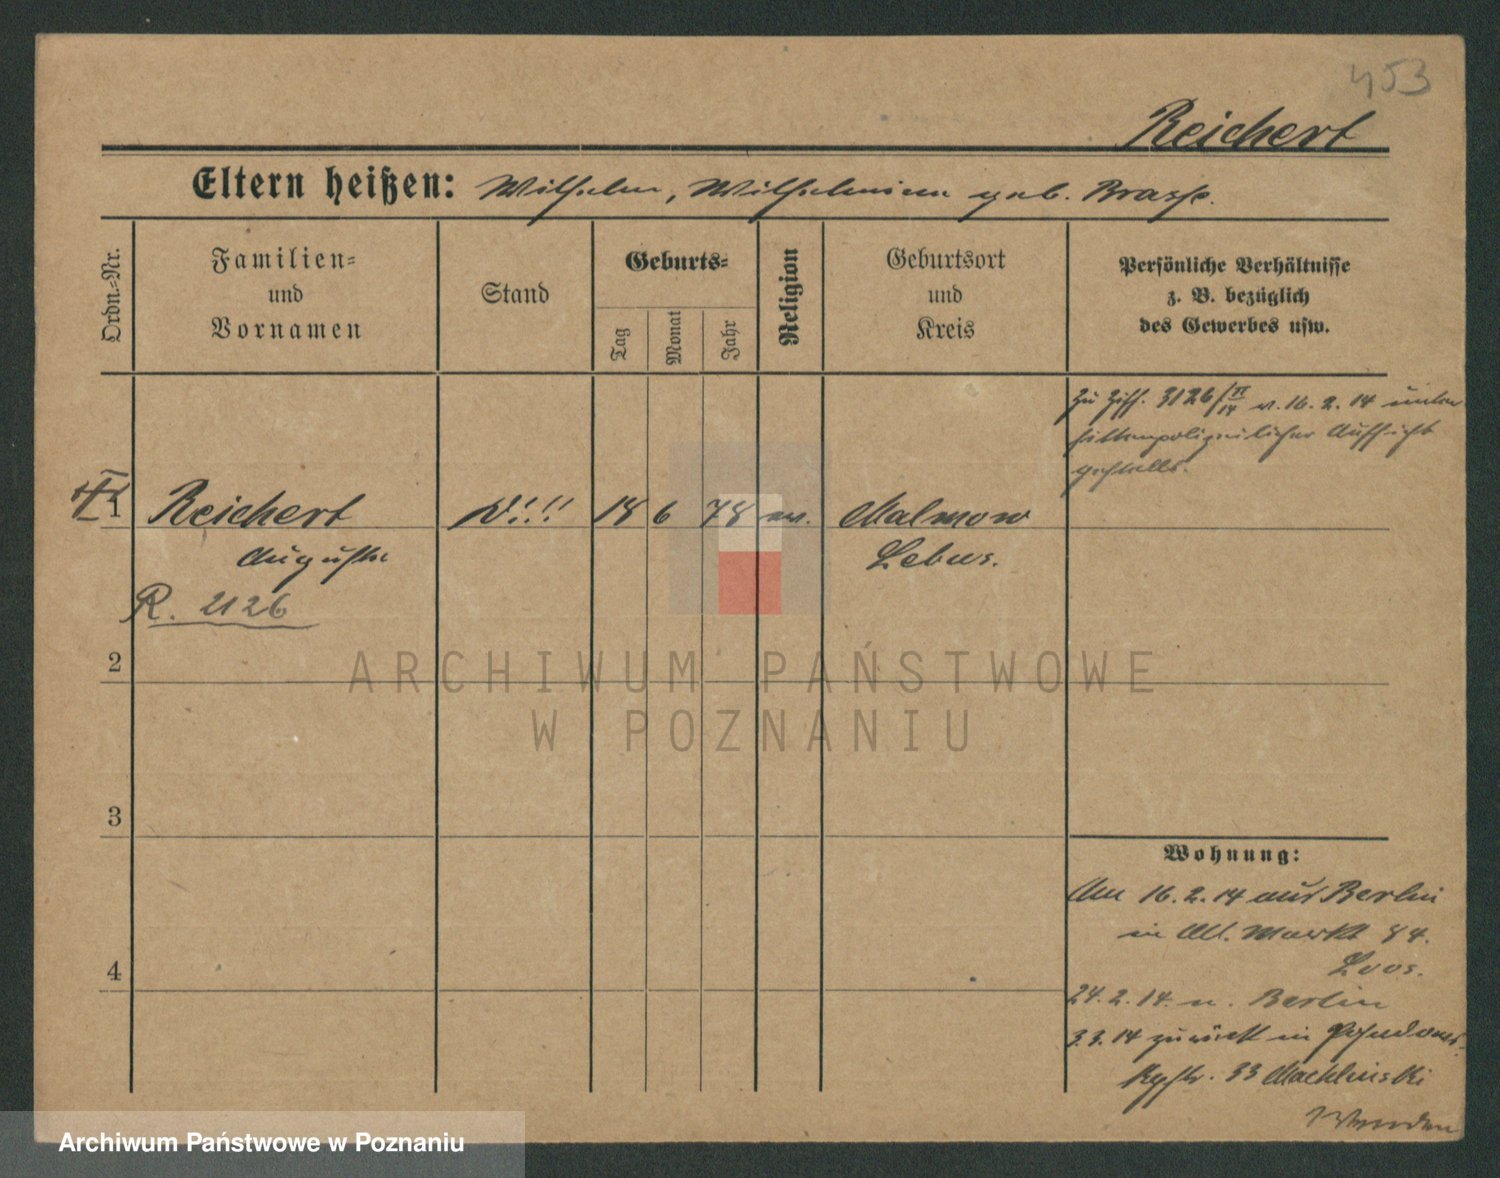 453
Reichert
Eltern heißen: Wilhelm, Wilhelmine geb. Brasse.
Ordn.-Nr.
Familien-
und
Vornamen
Stand
Geburts-
Tag
Monat
Jahr
Religion
Geburtsort
und
Kreis
Persönliche Verhältnisse
z. B. bezüglich
des Gewerbes usw.
Zu Ziff. 3126/II/14 v. 16.2.14 unter
sittenpolizeilicher Aufsicht
gestellt.
1 Reichert 18 6 78 ev. Malmow
Auguste Lebus.
R. 2126
2
3
4
Wohnung:
Am 16.2.14 aus Berlin
in Alt. Markt 84.
Loos.
24.2.14. n. Berlin
3.3.14 zurück in
33
ARCHIWUM PAŃSTWOWE
W POZNANIU
Archiwum Państwowe w Poznaniu